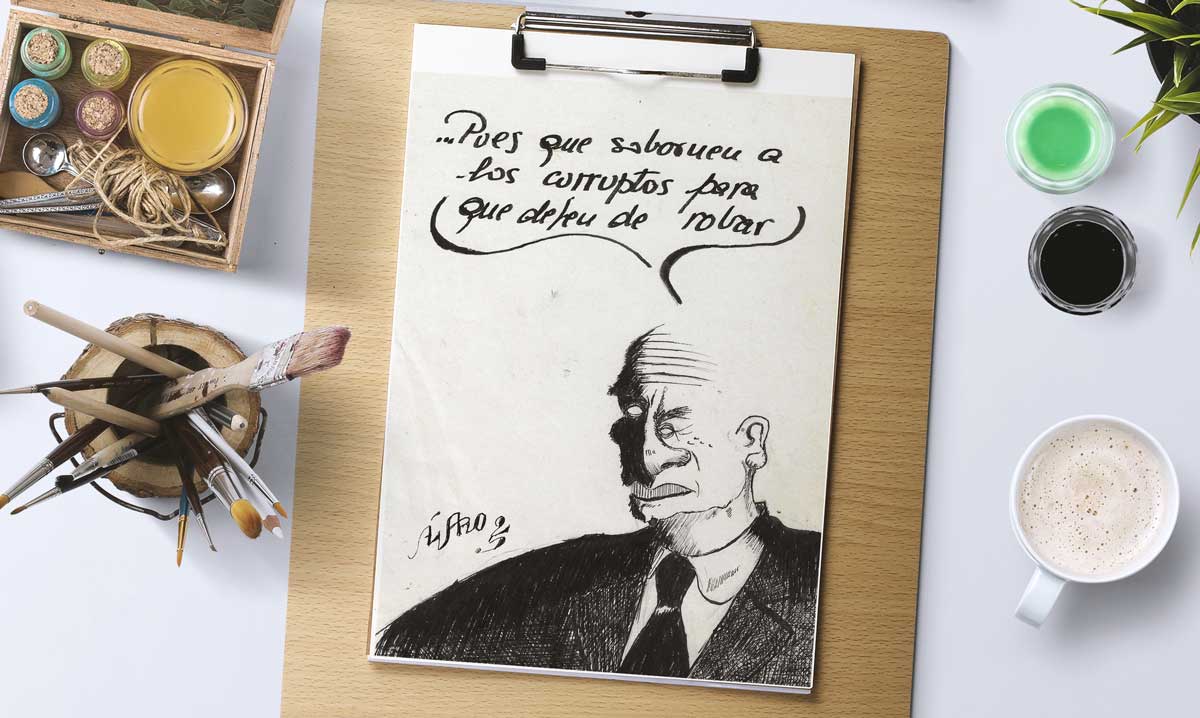 ...Pues que sobornen a
los corruptos para
que dejen de robar